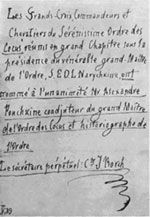 Les Grands-Croix, Commandeurs et
Chevaliers du Sérénissime Ordre des
Cocus réunis en grand Chapitre sous la
présidence du vénérable grand-Maître
de l'Ordre, S.E. D.L. Narychkine, ont
nommé à l'unanimité Mr Alexandre
Pouchkine coadjuteur du grand Maître
de l'Ordre des Cocus et historiographe de
l'Ordre.
Le sécrétaire perpétuel: Cte J. Borch